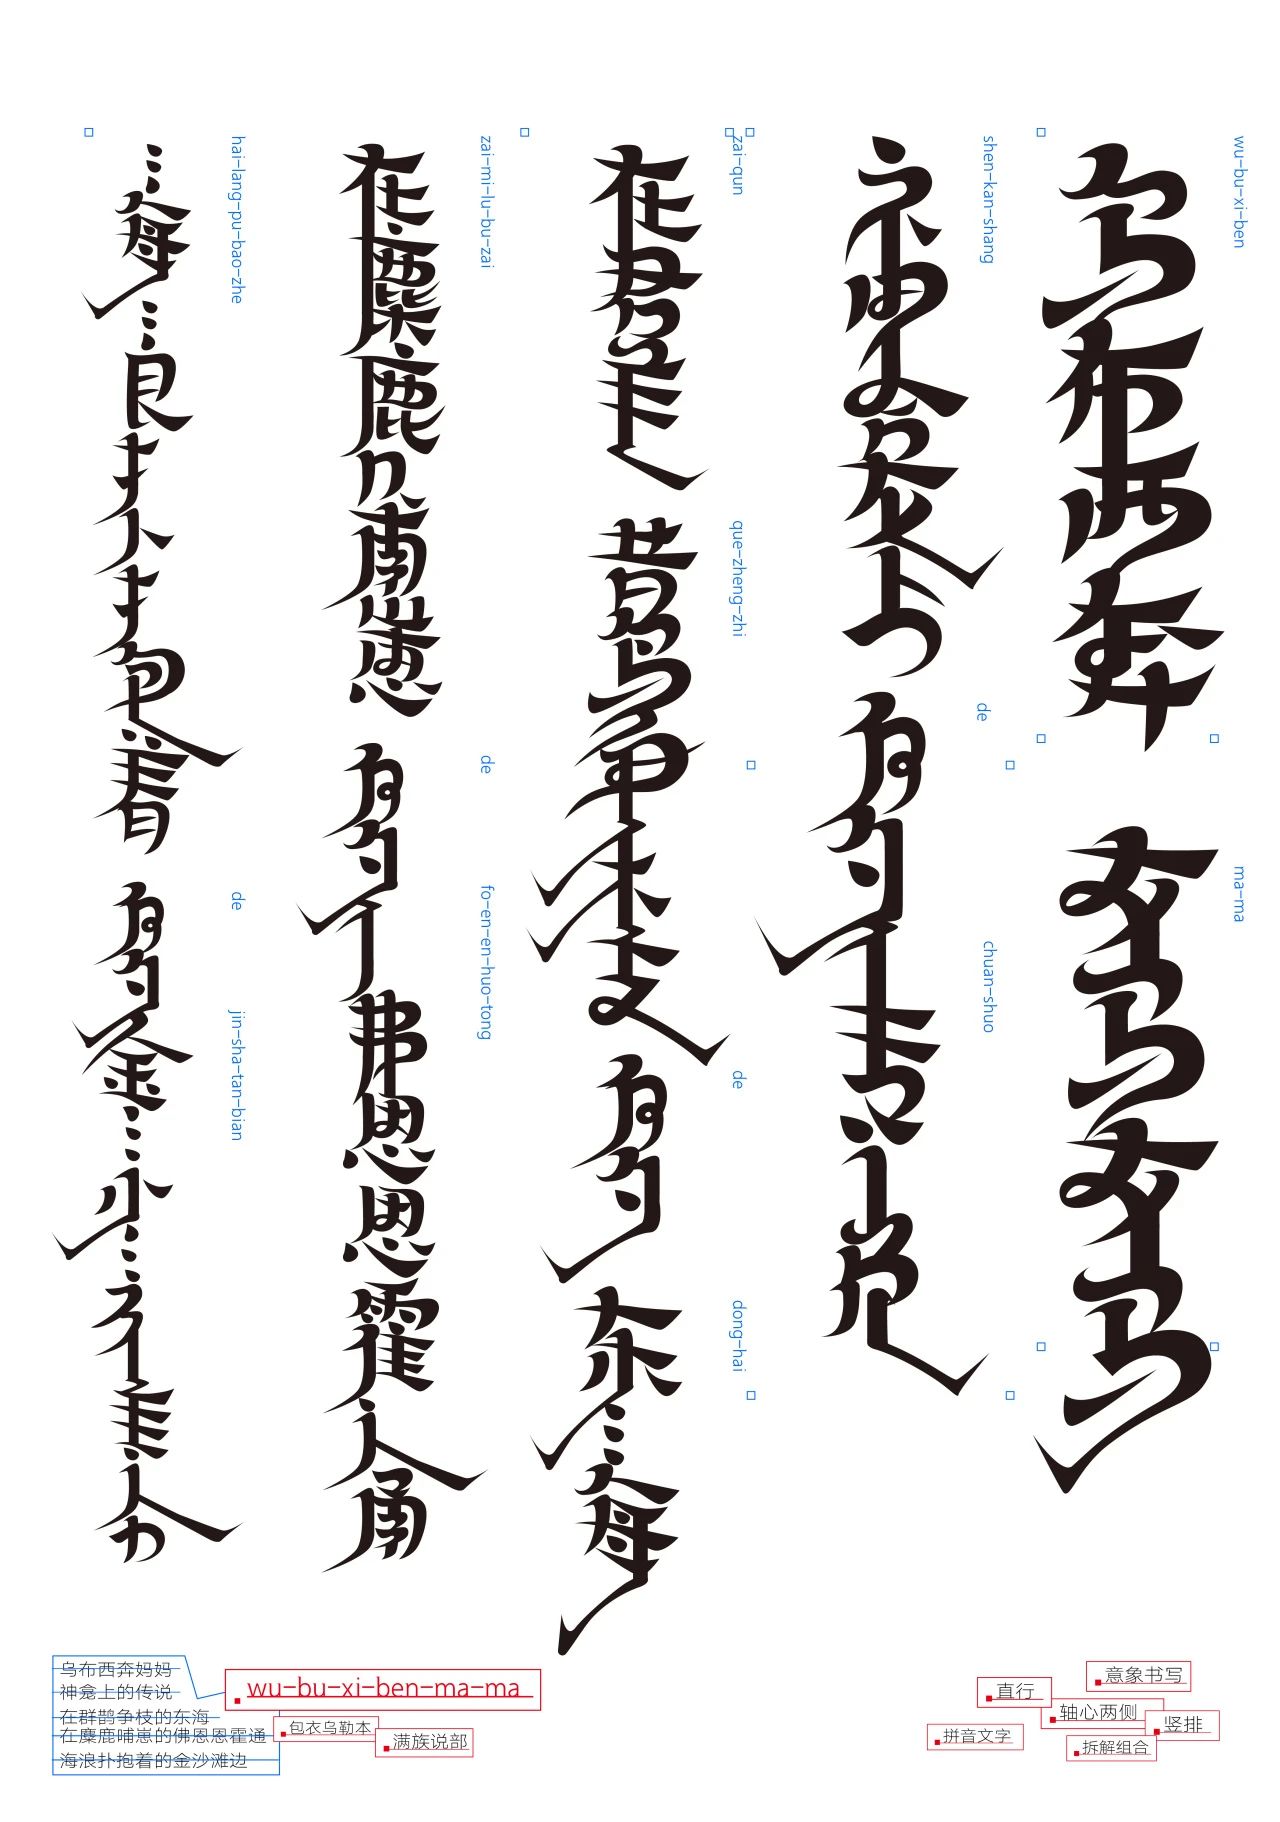 乌布西奔妈妈
wu-bu-xi-ben
ma-ma
神龛上的传说
shen-kan-shang
de
chuan-shuo
在群鹊争枝的东海
zai-qun
que-zheng-zhi
de
dong-hai
在麋鹿哺崽的佛恩恩霍通
zai-mi-lu-bu-zai
de
fo-en-en-huo-tong
海浪扑抱着的金沙滩边
hai-lang-pu-bao-zhe
de
jin-sha-tan-bian
乌布西奔妈妈
神龛上的传说
在群鹊争枝的东海
在麋鹿哺崽的佛恩恩霍通
海浪扑抱着的金沙滩边
wu-bu-xi-ben-ma-ma
包衣乌勒本
满族说部
意象书写
直行
轴心两侧
竖排
拼音文字
拆解组合